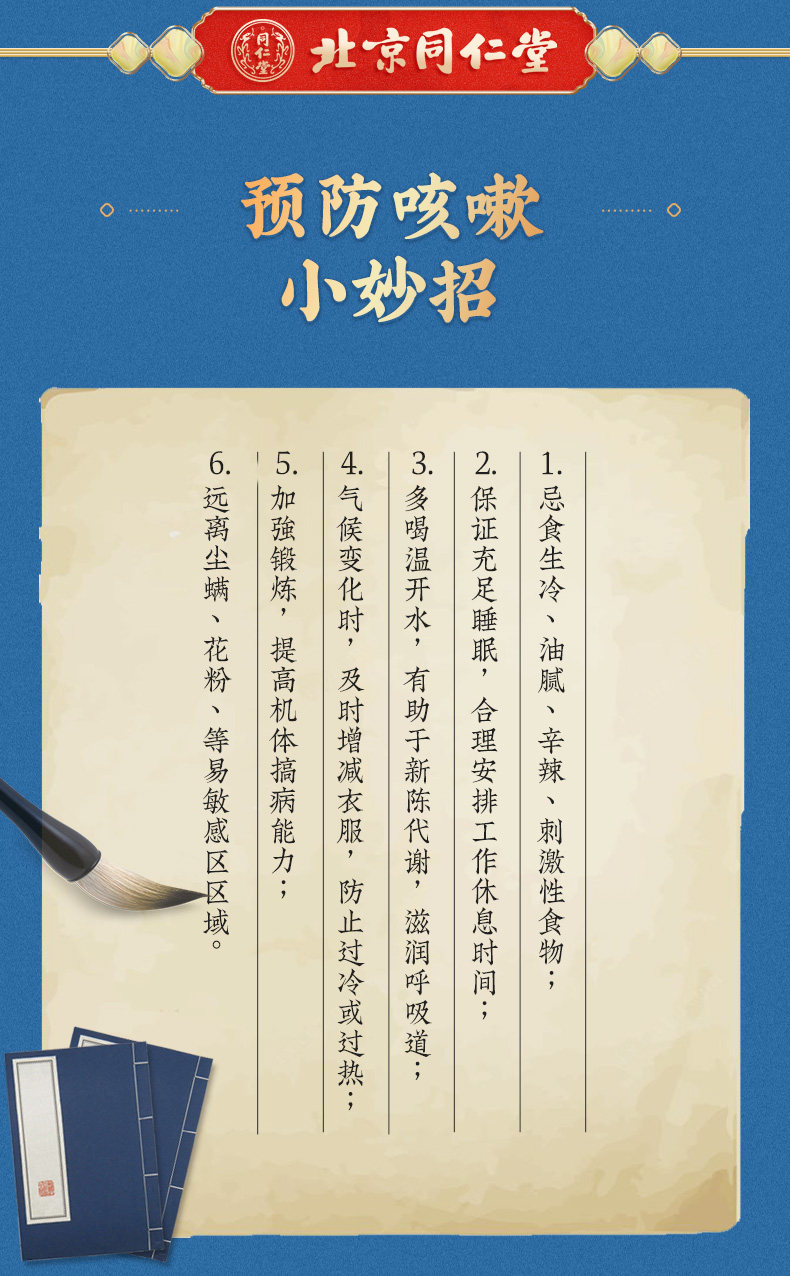 同仁堂
北京同仁堂
预防咳嗽
小妙招
1.忌食生冷、油腻、辛辣、刺激性食物；
2.保证充足睡眠，合理安排工作休息时间；
3.多喝温开水，有助于新陈代谢，滋润呼吸道；
4.气候变化时，及时增减衣服，防止过冷或过热；
5.加強锻炼，提高机体搞病能力；
6.远离尘螨、花粉、等易敏感区区域。